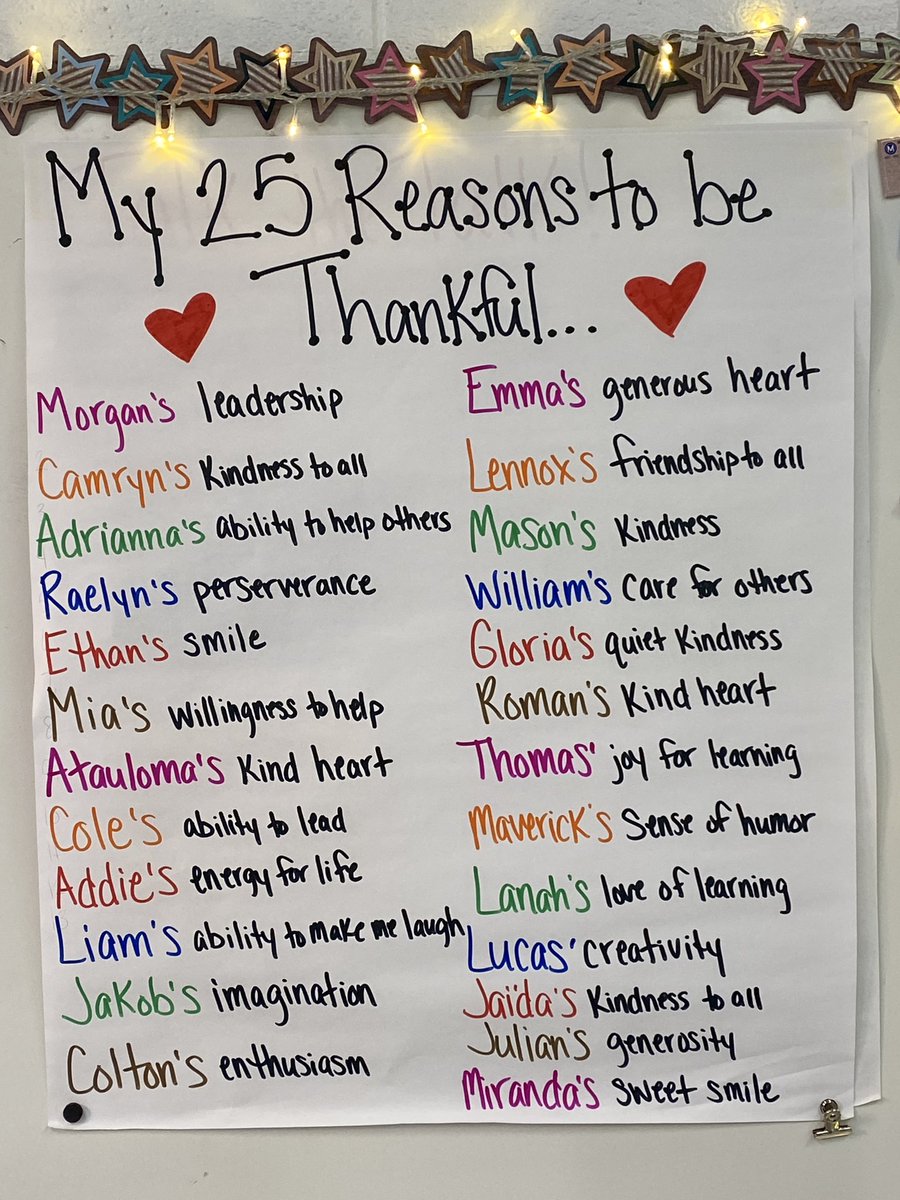 My 25 Reasons to be
Thankful...
Morgan's leadership
Camryn's kindness to all
Adrianna's ability to help others
Raelyn's perserverance
Ethan's smile
Mia's willingness to help
Atauloma's kind heart
Cole's ability to lead
Addie's energy for life
Liam's ability to make me laugh
Jakob's imagination
Colton's enthusiasm
Emma's generous heart
Lennox's friendship to all
Mason's kindness
William's care for others
Gloria's quiet kindness
Roman's kind heart
Thomas' joy for learning
Maverick's sense of humor
Lanah's love of learning
Lucas' creativity
Jaïda's kindness to all
Julian's generosity
Miranda's sweet smile
M